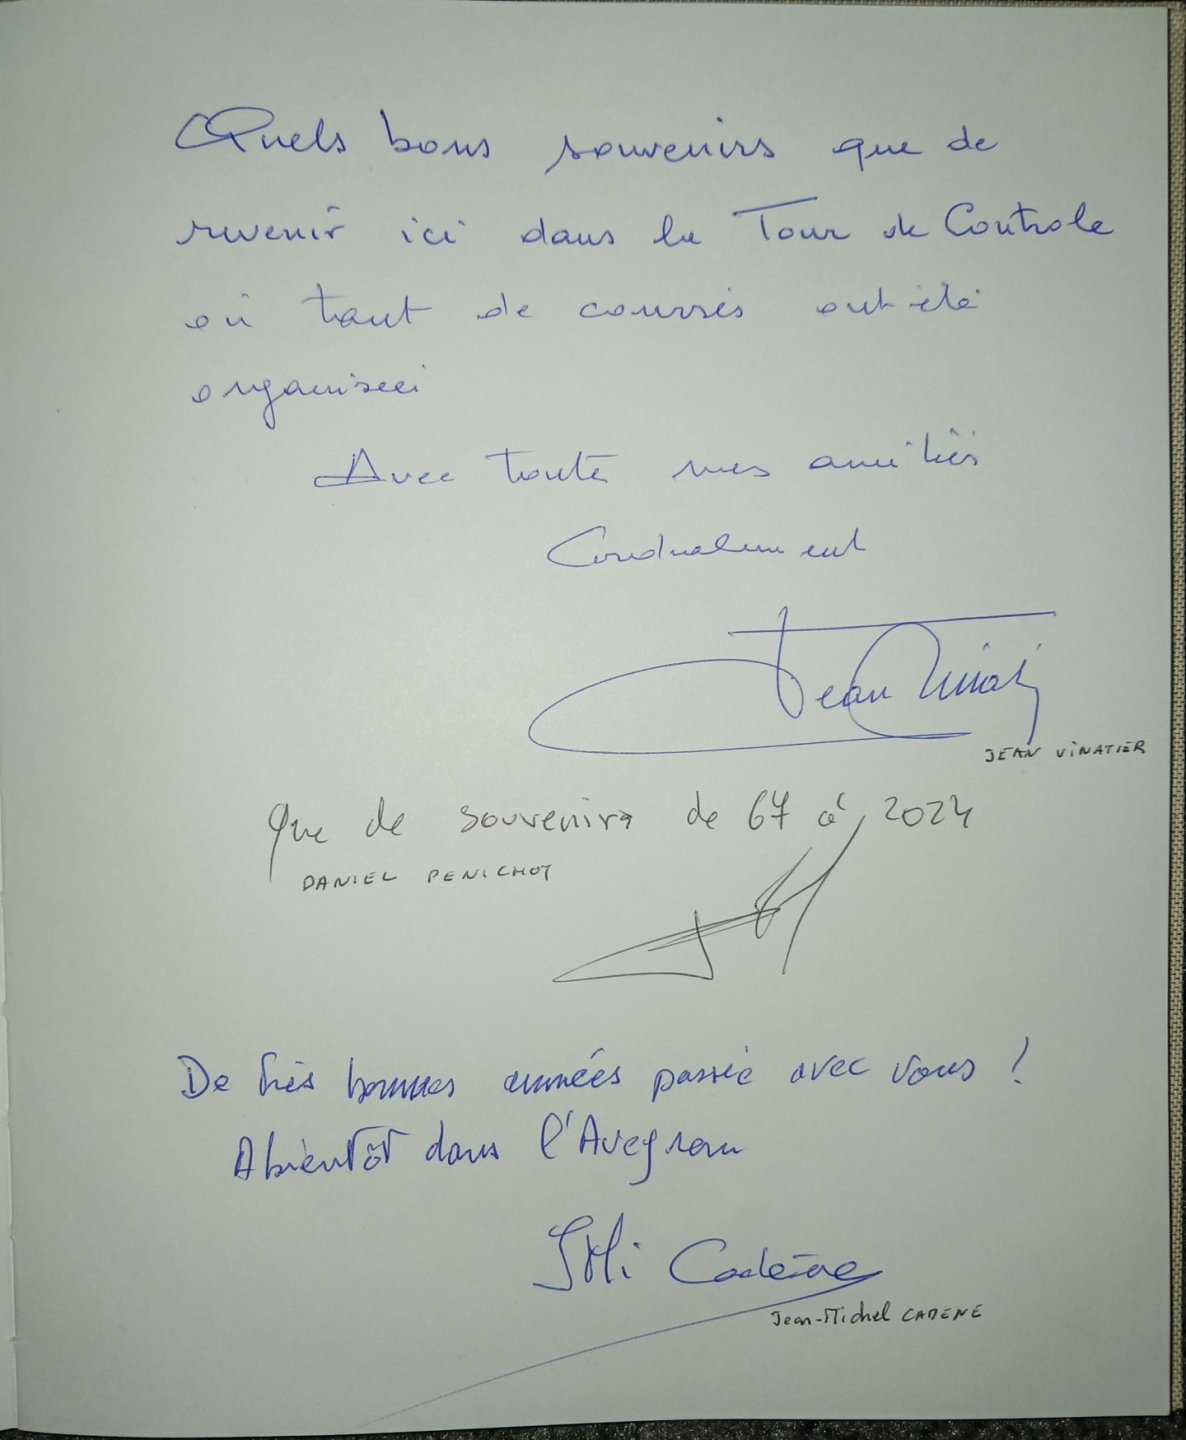 Quels bons souvenirs que de
revenir ici dans la Tour de Controle
où tant de courses ont été
organisées
Avec toute mes amitiés
Cordialement
Jean Vinatier
JEAN VINATIER
Que de souvenirs de 67 à 2024
DANIEL PENICHOT
De très bonnes années passée avec vous !
A bientôt dans l'Aveyron
JMi Cadène
Jean-Michel CADENE